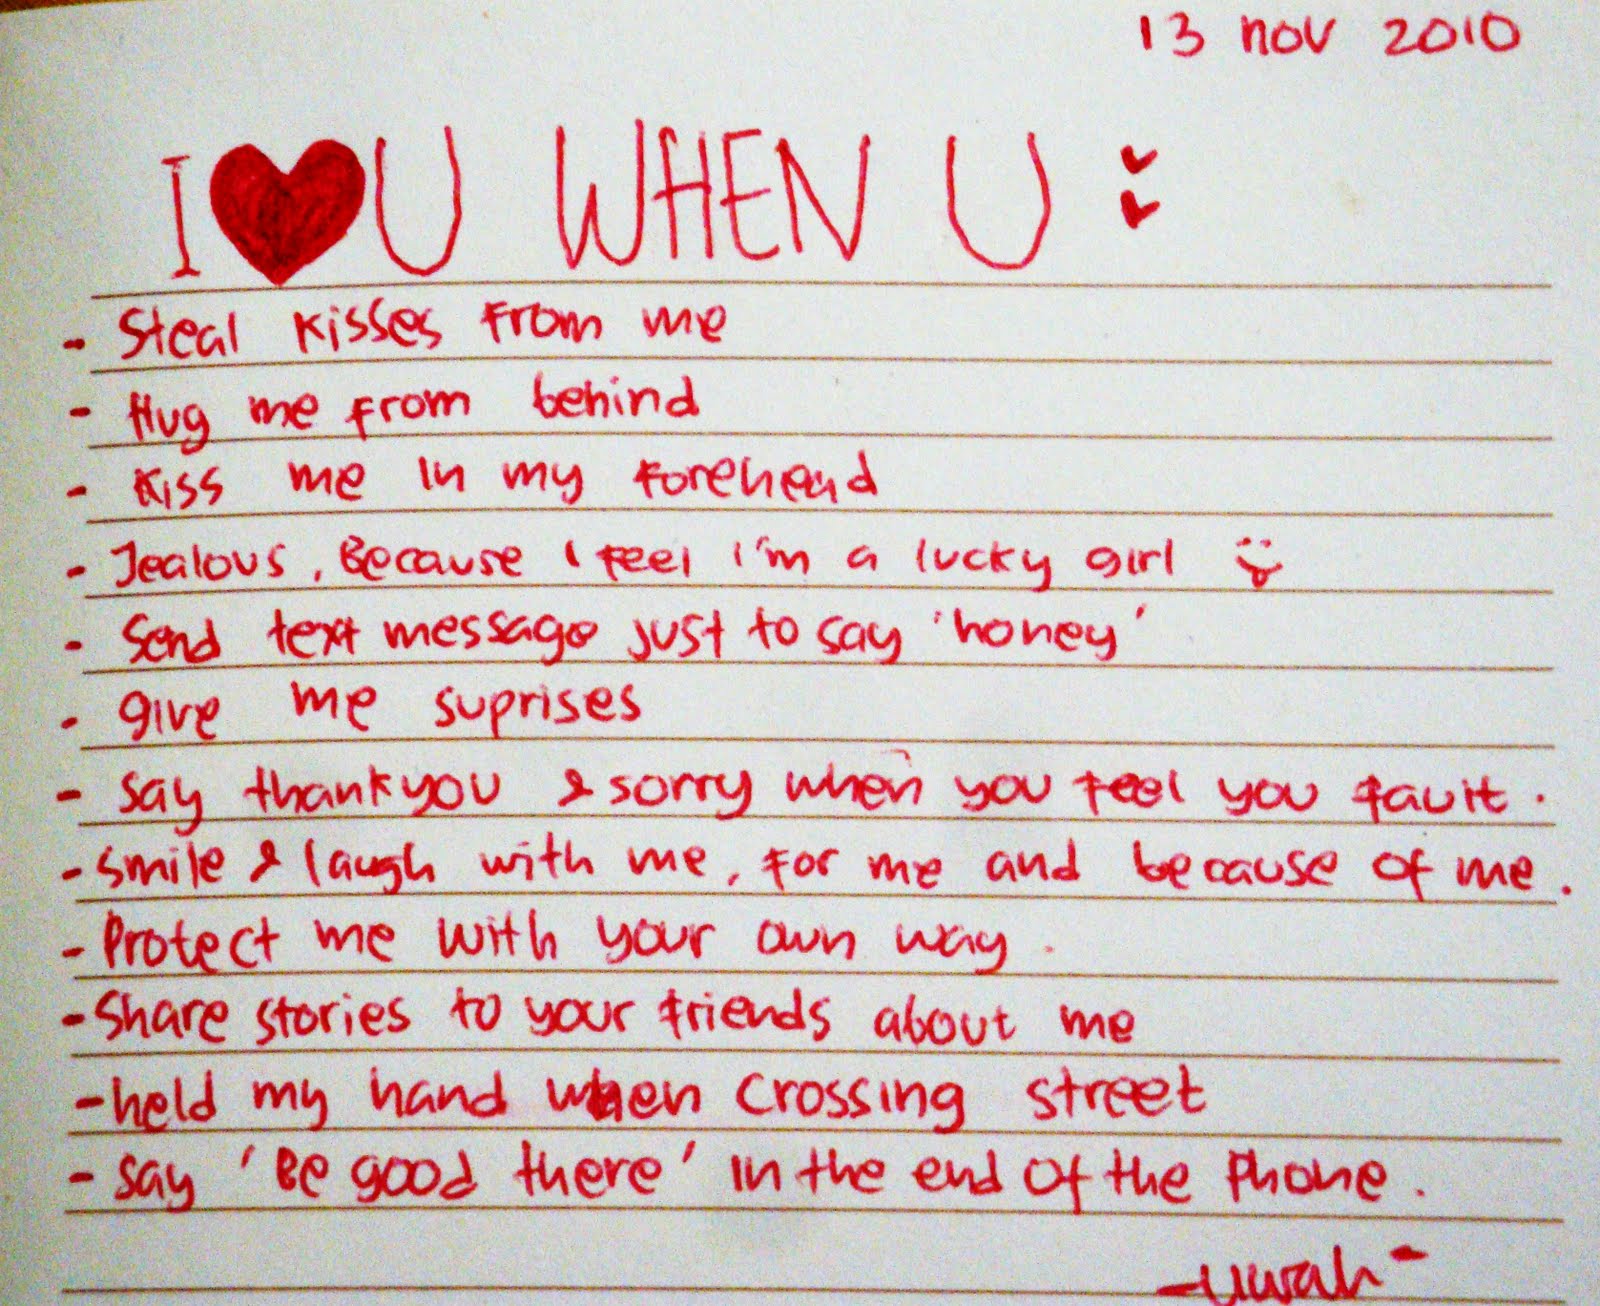 13 nov 2010
I ♥ U WHEN U :
- Steal kisses from me
- Hug me from behind
- Kiss me in my forehead
- Jealous, Because I feel I'm a lucky girl
- Send text message just to say 'honey'
- give me suprises
- say thankyou & sorry when you feel you fault.
- smile & laugh with me, for me and because of me.
- Protect me with your own way.
- Share stories to your friends about me
- held my hand when crossing street
- say 'Be good there' in the end of the phone.